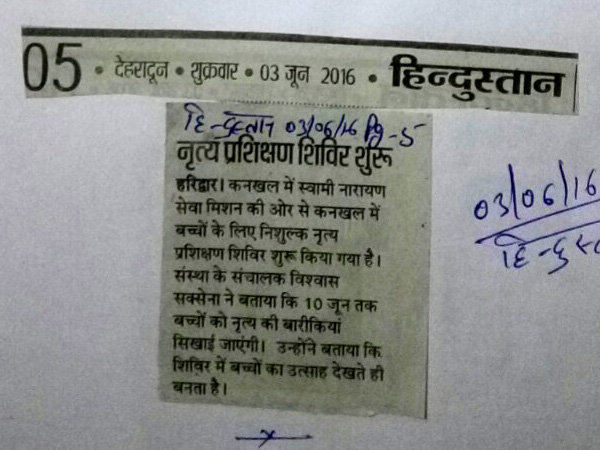 05 • देहरादून • शुक्रवार • 03 जून 2016 • हिन्दुस्तान
हि-दुस्तान 03/06/16 Pg-5
नृत्य प्रशिक्षण शिविर शुरू
हरिद्वार। कनखल में स्वामी नारायण
सेवा मिशन की ओर से कनखल में
बच्चों के लिए निशुल्क नृत्य
प्रशिक्षण शिविर शुरू किया गया है।
संस्था के संचालक विश्वास
सक्सेना ने बताया कि 10 जून तक
बच्चों को नृत्य की बारीकियां
सिखाई जाएंगी। उन्होंने बताया कि
शिविर में बच्चों का उत्साह देखते ही
बनता है।
03/06/16